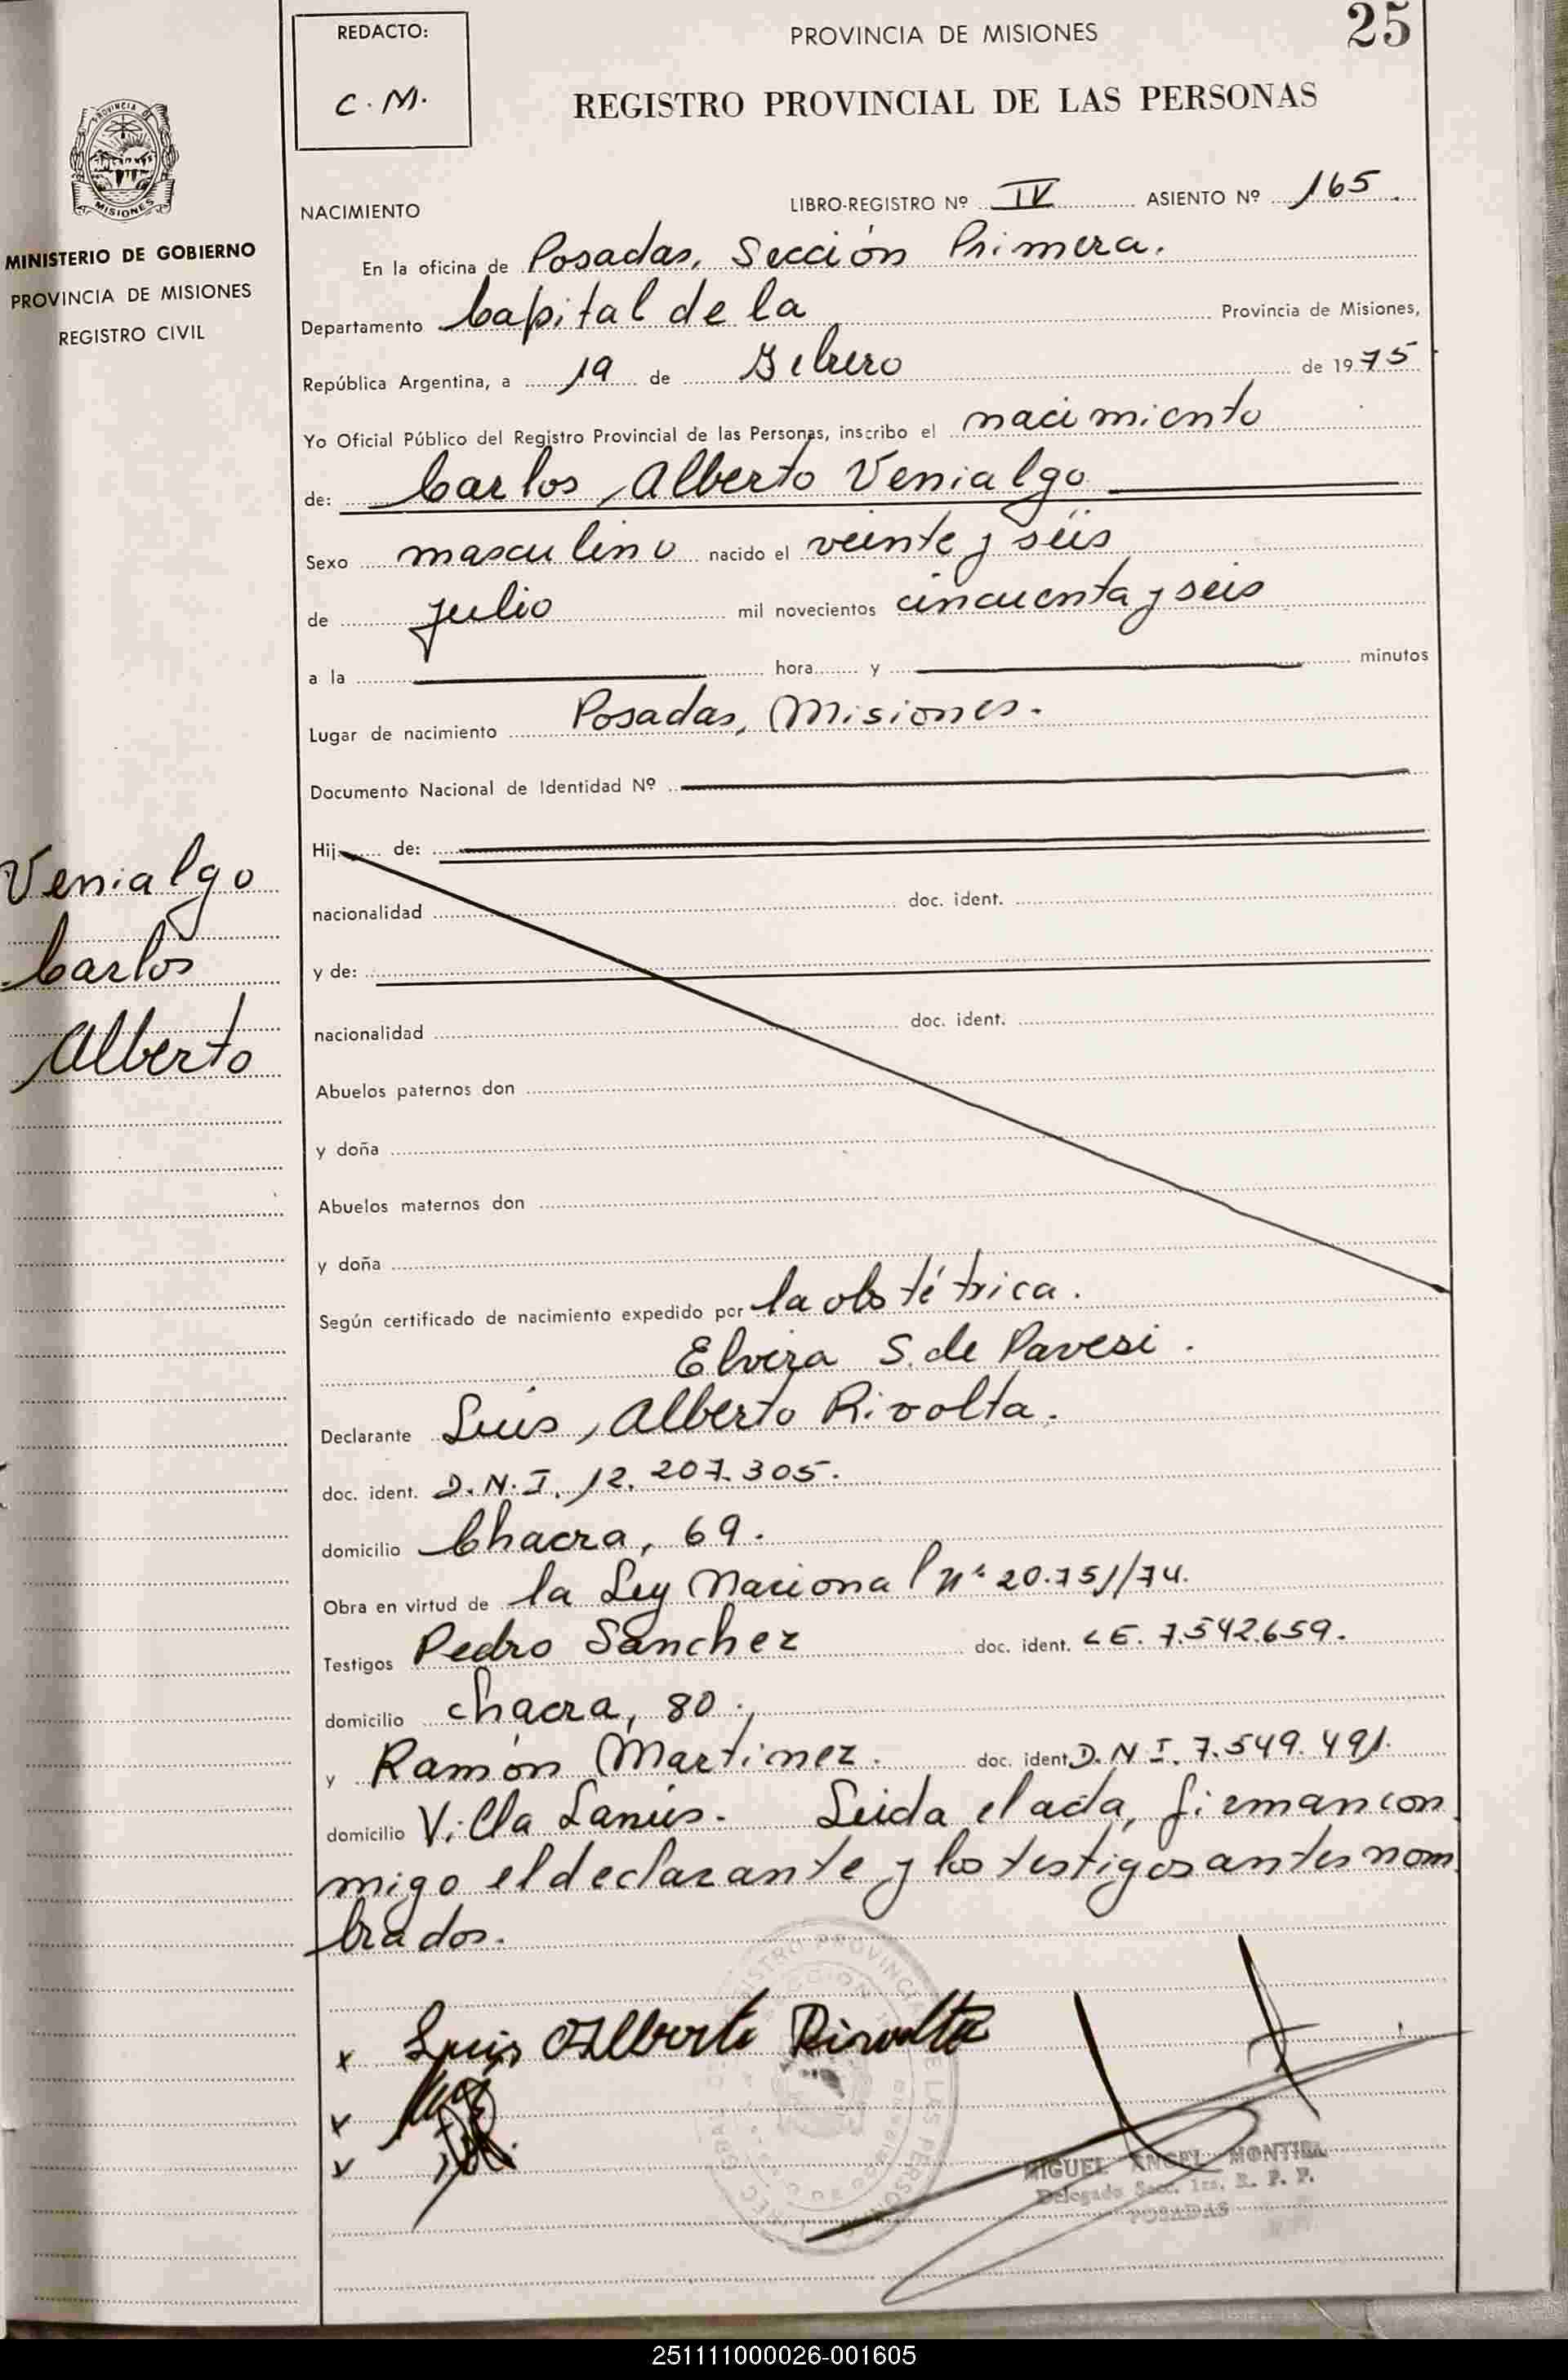 REDACTO:
C. M.
PROVINCIA DE MISIONES
25
REGISTRO PROVINCIAL DE LAS PERSONAS
PROVINCIA DE
MISIONES
MINISTERIO DE GOBIERNO
PROVINCIA DE MISIONES
REGISTRO CIVIL
NACIMIENTO LIBRO-REGISTRO Nº IV ASIENTO Nº 165.
En la oficina de Posadas, Sección Primera.
Departamento Capital de la Provincia de Misiones,
República Argentina, a 19 de Febrero de 1975
Yo Oficial Público del Registro Provincial de las Personas, inscribo el nacimiento
de: Carlos Alberto Venialgo
Sexo masculino nacido el veinte y séis
de julio mil novecientos cincuenta y seis
a la hora y minutos
Lugar de nacimiento Posadas, Misiones.
Documento Nacional de Identidad Nº
Hij de:
nacionalidad doc. ident.
y de:
nacionalidad doc. ident.
Abuelos paternos don
y doña
Abuelos maternos don
y doña
Venialgo
Carlos
Alberto
Según certificado de nacimiento expedido por la obstétrica.
Elvira S. de Pavesi.
Declarante Luis Alberto Rivolta.
doc. ident. D.N.I. 12.207.305.
domicilio Chacra, 69.
Obra en virtud de la Ley Nacional nº 20.751/74.
Testigos Pedro Sanchez doc. ident. L E. 7.542.659.
domicilio chacra, 80.
y Ramón Martinez. doc. ident. D. N I. 7.549.491.
domicilio Villa Lanús. Leida el acta, firman con
migo el declarante y los testigos antes nom
brados.
x Luis Alberto Rivolta
x
x
MIGUEL ANGEL MONTIEL
Delegado Secc. 1ra. R. P. P.
POSADAS
251111000026-001605